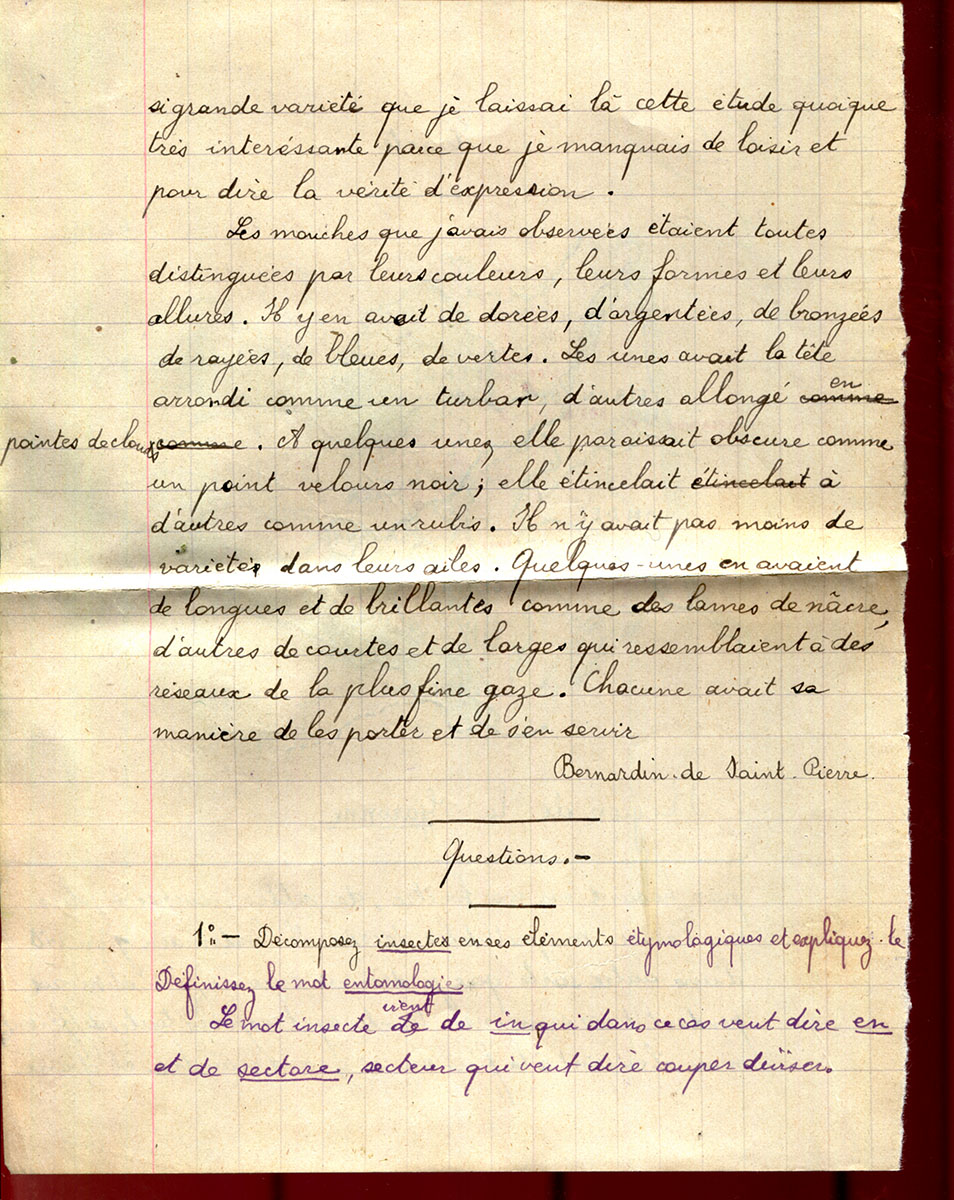 si grande variété que je laissai là cette étude quoique
très intéréssante parce que je manquais de loisir et
pour dire la vérité d'éxpression.
Les mouches que j'avais observées étaient toutes
distinguées par leurs couleurs, leurs formes et leurs
allures. Il y en avait de dorées, d'argentées, de bronzées
de rayées, de bleues, de vertes. Les unes avait la tête
arrondi comme un turban, d'autres allongé comme en
pointes de clous comme. A quelques unes, elle paraissait obscure comme
un point velours noir; elle étincelait étincelait à
d'autres comme un rubis. Il n'y avait pas moins de
variétés dans leurs ailes. Quelques-unes en avaient
de longues et de brillantes comme des lames de nâcre,
d'autres de courtes et de larges qui ressemblaient à des
réseaux de la plus fine gaze. Chacune avait sa
manière de les porter et de s'en servir
Bernardin de Saint-Pierre.
Questions.-
1º - Décomposez insectes en ses éléments étymologiques et expliquez-le
Définissez le mot entomologie
vient
Le mot insecte de de in qui dans ce cas veut dire en
et de sectare, secteur qui veut dire couper diviser.